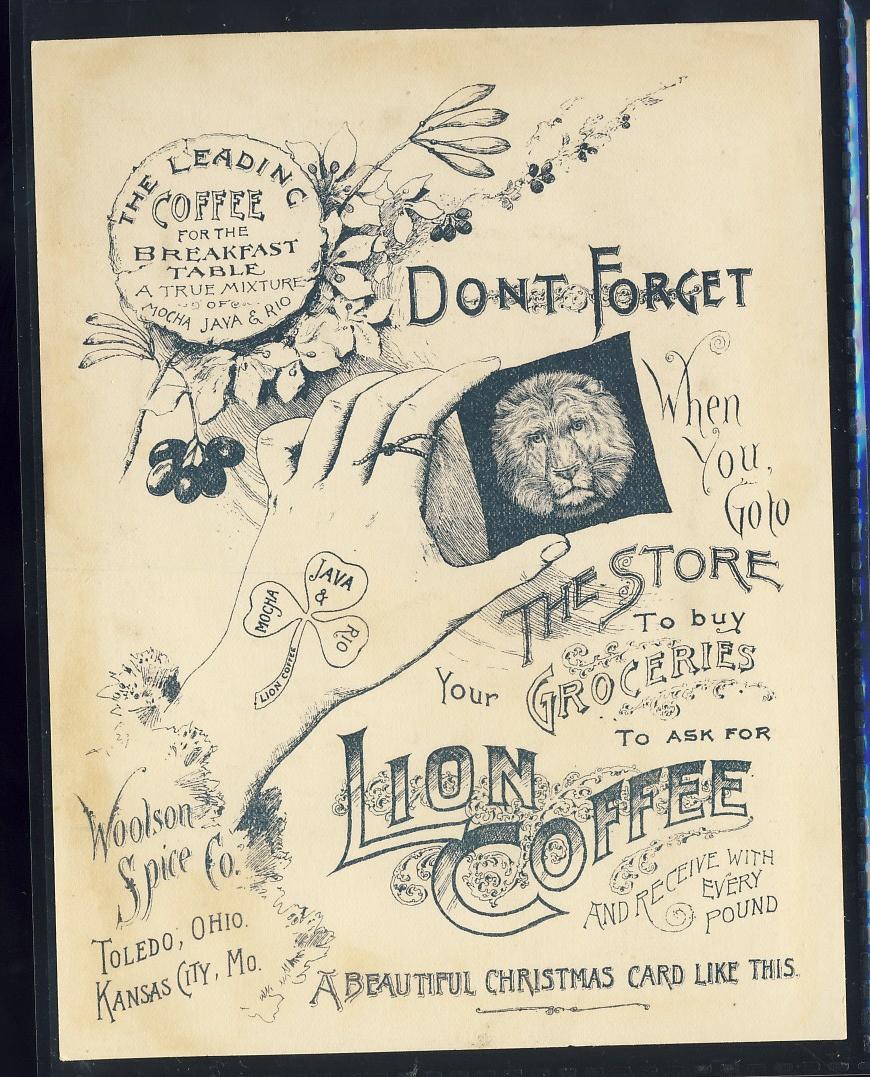 THE LEADING
COFFEE
FOR THE
BREAKFAST
TABLE
A TRUE MIXTURE
OF
MOCHA JAVA & RIO
DONT FORGET
When
You,
Go to
THE STORE
To buy
Your GROCERIES
TO ASK FOR
LION
COFFEE
AND RECEIVE WITH
EVERY
POUND
A BEAUTIFUL CHRISTMAS CARD LIKE THIS.
MOCHA
JAVA
&
RIO
LION COFFEE
Woolson
Spice Co.
TOLEDO, OHIO.
KANSAS CITY, MO.